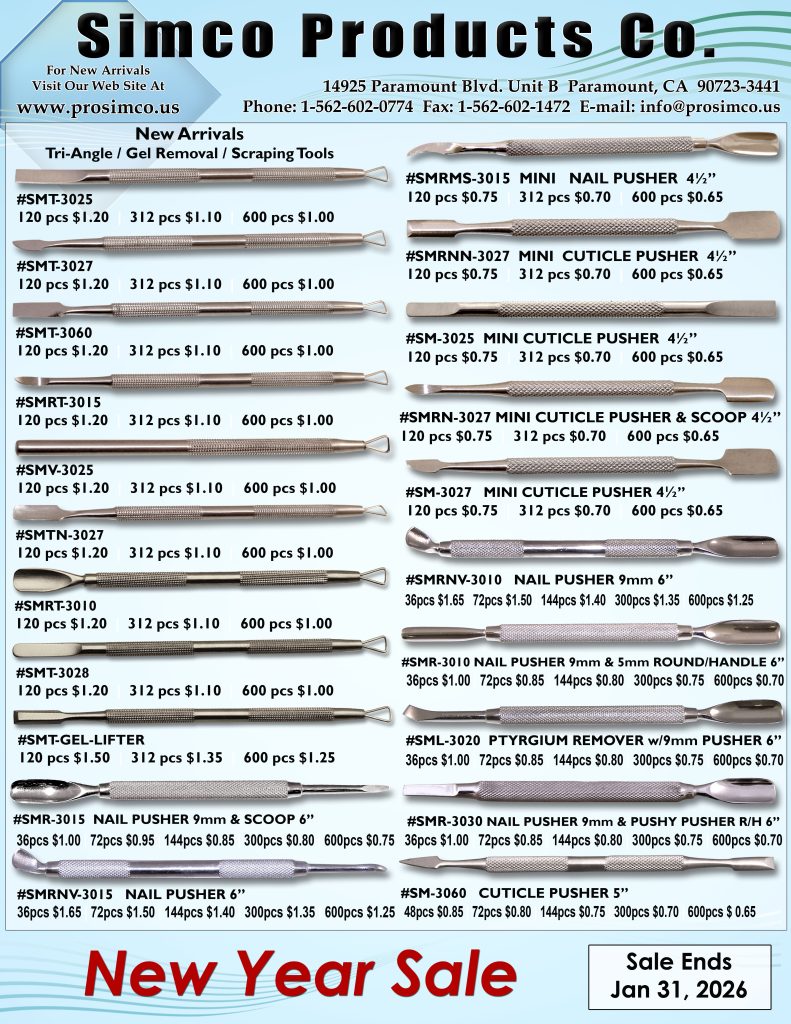 Simco Products Co.
For New Arrivals
Visit Our Web Site At
www.prosimco.us
14925 Paramount Blvd. Unit B Paramount, CA 90723-3441
Phone: 1-562-602-0774 Fax: 1-562-602-1472 E-mail: info@prosimco.us
New Arrivals
Tri-Angle / Gel Removal / Scraping Tools
#SMT-3025
120 pcs $1.20 312 pcs $1.10 600 pcs $1.00
#SMT-3027
120 pcs $1.20 312 pcs $1.10 600 pcs $1.00
#SMT-3060
120 pcs $1.20 312 pcs $1.10 600 pcs $1.00
#SMRT-3015
120 pcs $1.20 312 pcs $1.10 600 pcs $1.00
#SMV-3025
120 pcs $1.20 312 pcs $1.10 600 pcs $1.00
#SMTN-3027
120 pcs $1.20 312 pcs $1.10 600 pcs $1.00
#SMRT-3010
120 pcs $1.20 312 pcs $1.10 600 pcs $1.00
#SMT-3028
120 pcs $1.20 312 pcs $1.10 600 pcs $1.00
#SMT-GEL-LIFTER
120 pcs $1.50 312 pcs $1.35 600 pcs $1.25
#SMR-3015 NAIL PUSHER 9mm & SCOOP 6”
36pcs $1.00 72pcs $0.95 144pcs $0.85 300pcs $0.80 600pcs $0.75
#SMRNV-3015 NAIL PUSHER 6”
36pcs $1.65 72pcs $1.50 144pcs $1.40 300pcs $1.35 600pcs $1.25
#SMRMS-3015 MINI NAIL PUSHER 4½”
120 pcs $0.75 312 pcs $0.70 600 pcs $0.65
#SMRNN-3027 MINI CUTICLE PUSHER 4½”
120 pcs $0.75 312 pcs $0.70 600 pcs $0.65
#SM-3025 MINI CUTICLE PUSHER 4½”
120 pcs $0.75 312 pcs $0.70 600 pcs $0.65
#SMRN-3027 MINI CUTICLE PUSHER & SCOOP 4½”
120 pcs $0.75 312 pcs $0.70 600 pcs $0.65
#SM-3027 MINI CUTICLE PUSHER 4½”
120 pcs $0.75 312 pcs $0.70 600 pcs $0.65
#SMRNV-3010 NAIL PUSHER 9mm 6”
36pcs $1.65 72pcs $1.50 144pcs $1.40 300pcs $1.35 600pcs $1.25
#SMR-3010 NAIL PUSHER 9mm & 5mm ROUND/HANDLE 6”
36pcs $1.00 72pcs $0.85 144pcs $0.80 300pcs $0.75 600pcs $0.70
#SML-3020 PTYRGIUM REMOVER w/9mm PUSHER 6”
36pcs $1.00 72pcs $0.85 144pcs $0.80 300pcs $0.75 600pcs $0.70
#SMR-3030 NAIL PUSHER 9mm & PUSHY PUSHER R/H 6”
36pcs $1.00 72pcs $0.85 144pcs $0.80 300pcs $0.75 600pcs $0.70
#SM-3060 CUTICLE PUSHER 5”
48pcs $0.85 72pcs $0.80 144pcs $0.75 300pcs $0.70 600pcs $ 0.65
New Year Sale
Sale Ends
Jan 31, 2026